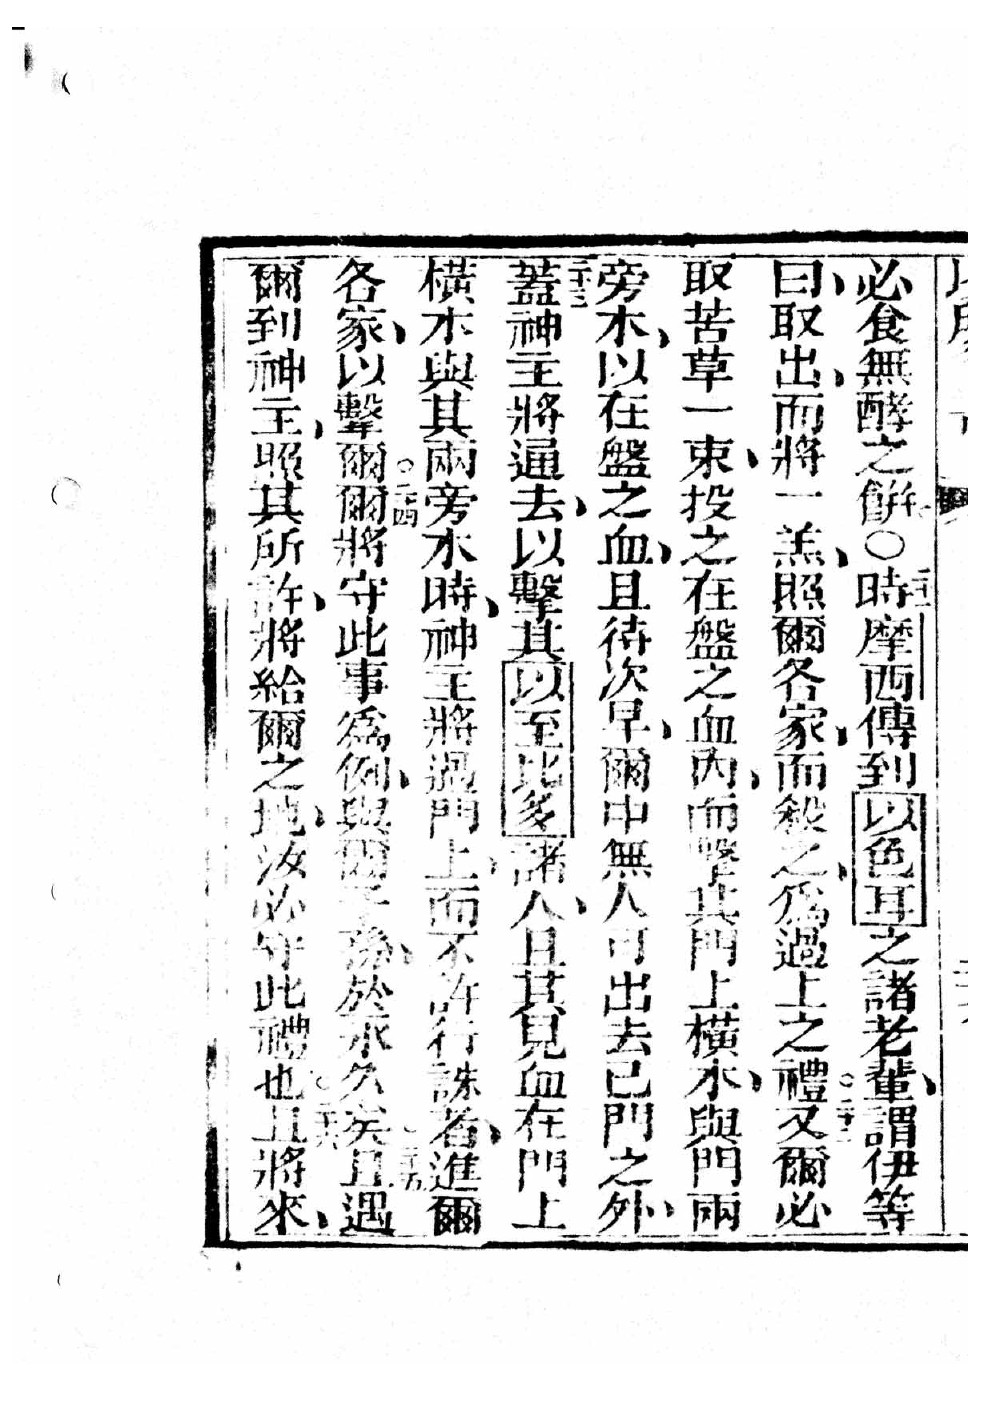 必食無酵之餅〇時摩西傳到以色耳之諸老輩謂伊等
曰取出而將一羔照爾各家而殺之為過上之禮又爾必
取苦草一束投之在盤之血內而擊其門上橫木與門兩
旁木以在盤之血且待次早爾中無人可出去己門之外
蓋神主將通去以擊其以至比多諸人且其見血在門上
橫木與其兩旁木時神主將過門上而不許行誅者進爾
各家以擊爾爾將守此事為例與爾子孫於永久矣且遇
爾到神主照其所許將給爾之地汝必守此禮也且將來